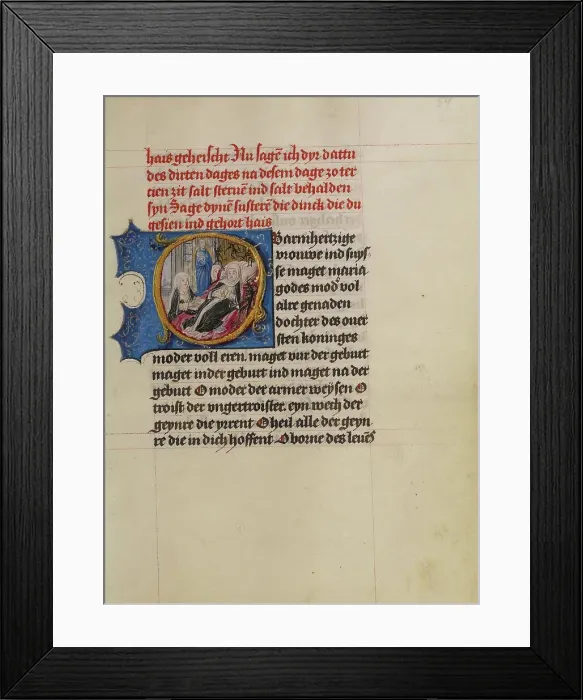 hais geheischt Nu sagē ich dyr dattu
des dirten dages na desem dage zo ter
cien zit salt steruē ind salt behalden
syn Sage dynē susterē die dinck die du
gesien ind gehort hais
Barmhertzige
vrouwe ind suys
se maget maria
godes mod vol
alre genaden
dochter des ouer
sten koninges
moder voll eren. maget vur der geburt
maget inder geburt ind maget na der
geburt O moder der armer weysen O
troist der vngertroister. eyn wech der
geynre die yrrent O heil alle der geyn
re die in dich hoffent O borne des leuēs